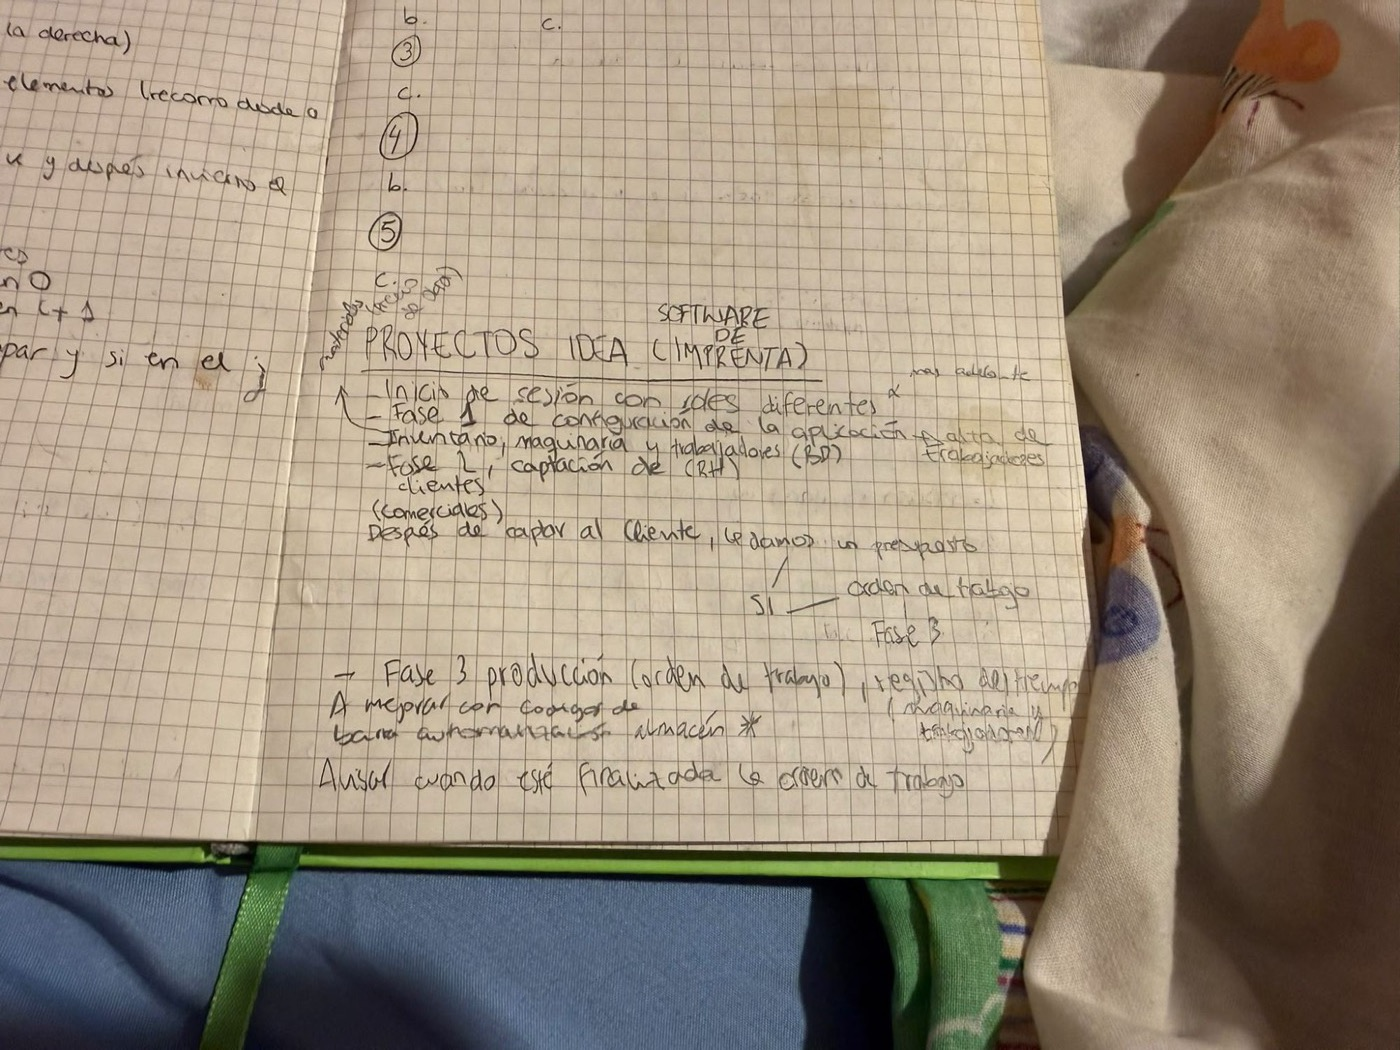 la derecha)
elementos (recorro desde 0
y después
en 0
en i + 1
par y si en el j
b.
c.
3
c.
4
b.
5
c.
materiales
SOFTWARE
DE
PROYECTOS IDEA (IMPRENTA)
más adelante
- Inicio de sesión con roles diferentes
- Fase 1 de configuración de la aplicación → alta de
trabajadores
- Inventario, maquinaria y trabajadores (BD)
- Fase 2, captación de (RH)
clientes
(comerciales)
Después de captar al cliente, le damos un presupuesto
SI
orden de trabajo
Fase 3
→ Fase 3 producción (orden de trabajo), registro del tiempo
(maquinaria y
trabajadores)
A mejorar con codigos de
barra automatización almacén *
Avisar cuando esté finalizada la orden de trabajo